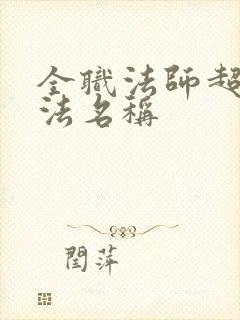 全職法師超
法名稱
閆萍